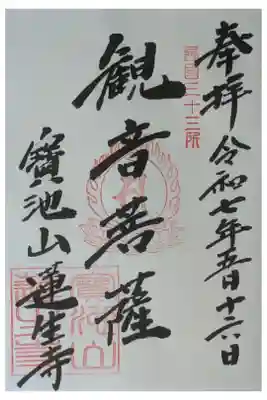 奉拝 令和七年五月十六日
三十三所
観音菩薩
寶池山 蓮生寺